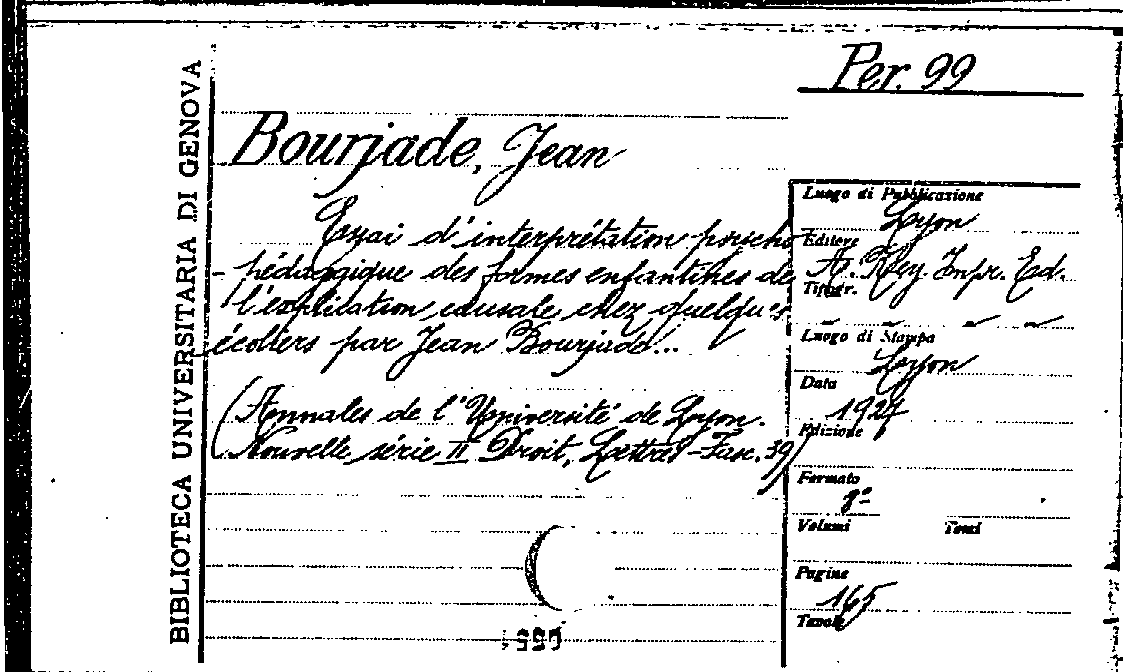 Per. 99
BIBLIOTECA UNIVERSITARIA DI GENOVA
Bourjade, Jean
Essai d'interprétation psycho
-pédagogique des formes enfantines de
l'explication causale chez quelques
écoliers par Jean Bourjade...
(Annales de l'Université de Lyon.
Nouvelle série II Droit, Lettres-Fasc. 39)
Luogo di Pubblicazione
Lyon
Editore
A. Rey Impr. Ed.
Tipogr.
Luogo di Stampa
Lyon
Data
1927
Edizione
Formato
8º
Volumi Tomi
Pagine
165
Tavole